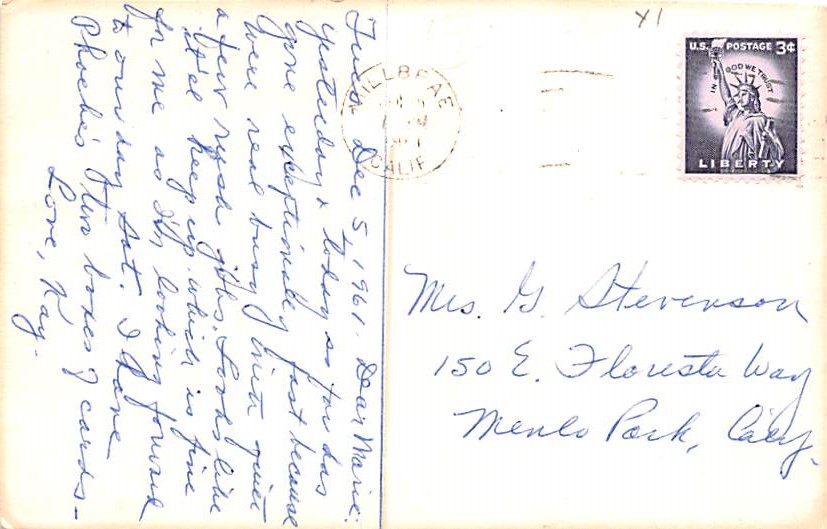 Tues. Dec 5, 1961. Dear Marie:
yesterday & today so far has
gone exceptionally fast because
were real busy with quiet
a few rush jobs. Looks like
it'll keep up which is fine
for me as I'm looking forward
to our day Sat. I have
Phoebe's ten boxes of cards –
Love, Kay.
X1
MILLBRAE
CALIF
U.S. POSTAGE 3¢
IN GOD WE TRUST
LIBERTY
Mrs. G. Stevenson
150 E. Floresta Way
Menlo Park, Calif.